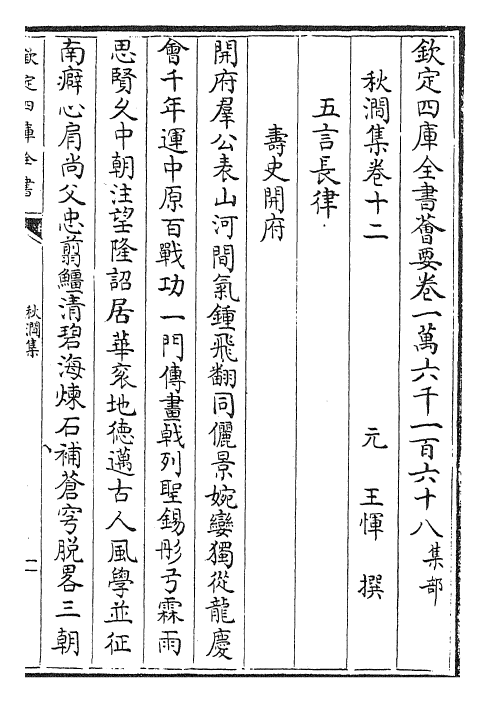 欽定四庫全書薈要卷一萬六千一百六十八集部
秋澗集卷十二　元　王惲　撰
五言長律
壽史開府
開府羣公表山河間氣鍾飛翻同儷景婉孌獨從龍慶
會千年運中原百戰功一門傳畫戟列聖錫彤弓霖雨
思賢乆中朝注望隆詔居華衮地德邁古人風學並征
南癖心肩尚父忠翦鱷清碧海煉石補蒼穹脱畧三朝
欽定四庫全書
秋澗集
一